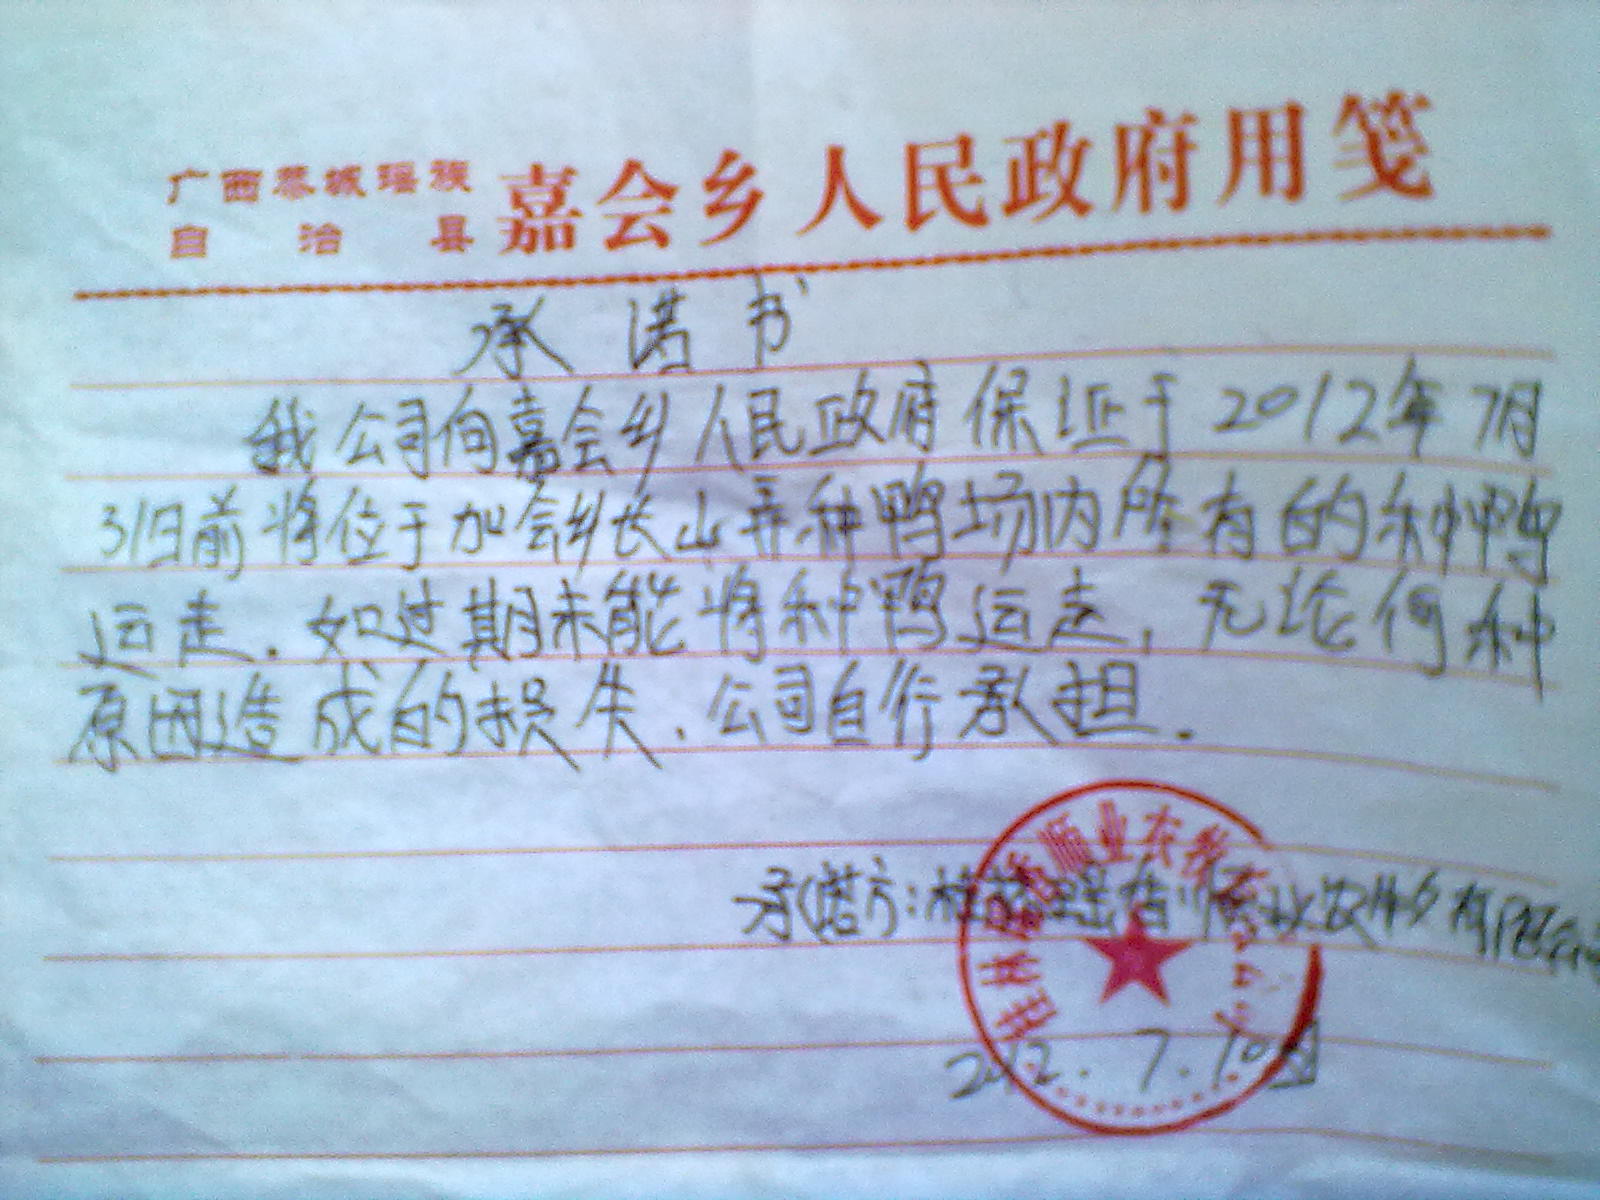 广西恭城瑶族
自治县
嘉会乡人民政府用笺
承诺书
我公司向嘉会乡人民政府保证于2012年7月
31日前将位于加会乡长山弄种鸭场内所有的种鸭
运走.如过期未能将种鸭运走,无论何种
原因造成的损失、公司自行承担.
承诺方:桂林 顺业农牧有限公司
桂林 顺业农牧有限公司
2012.7.10日